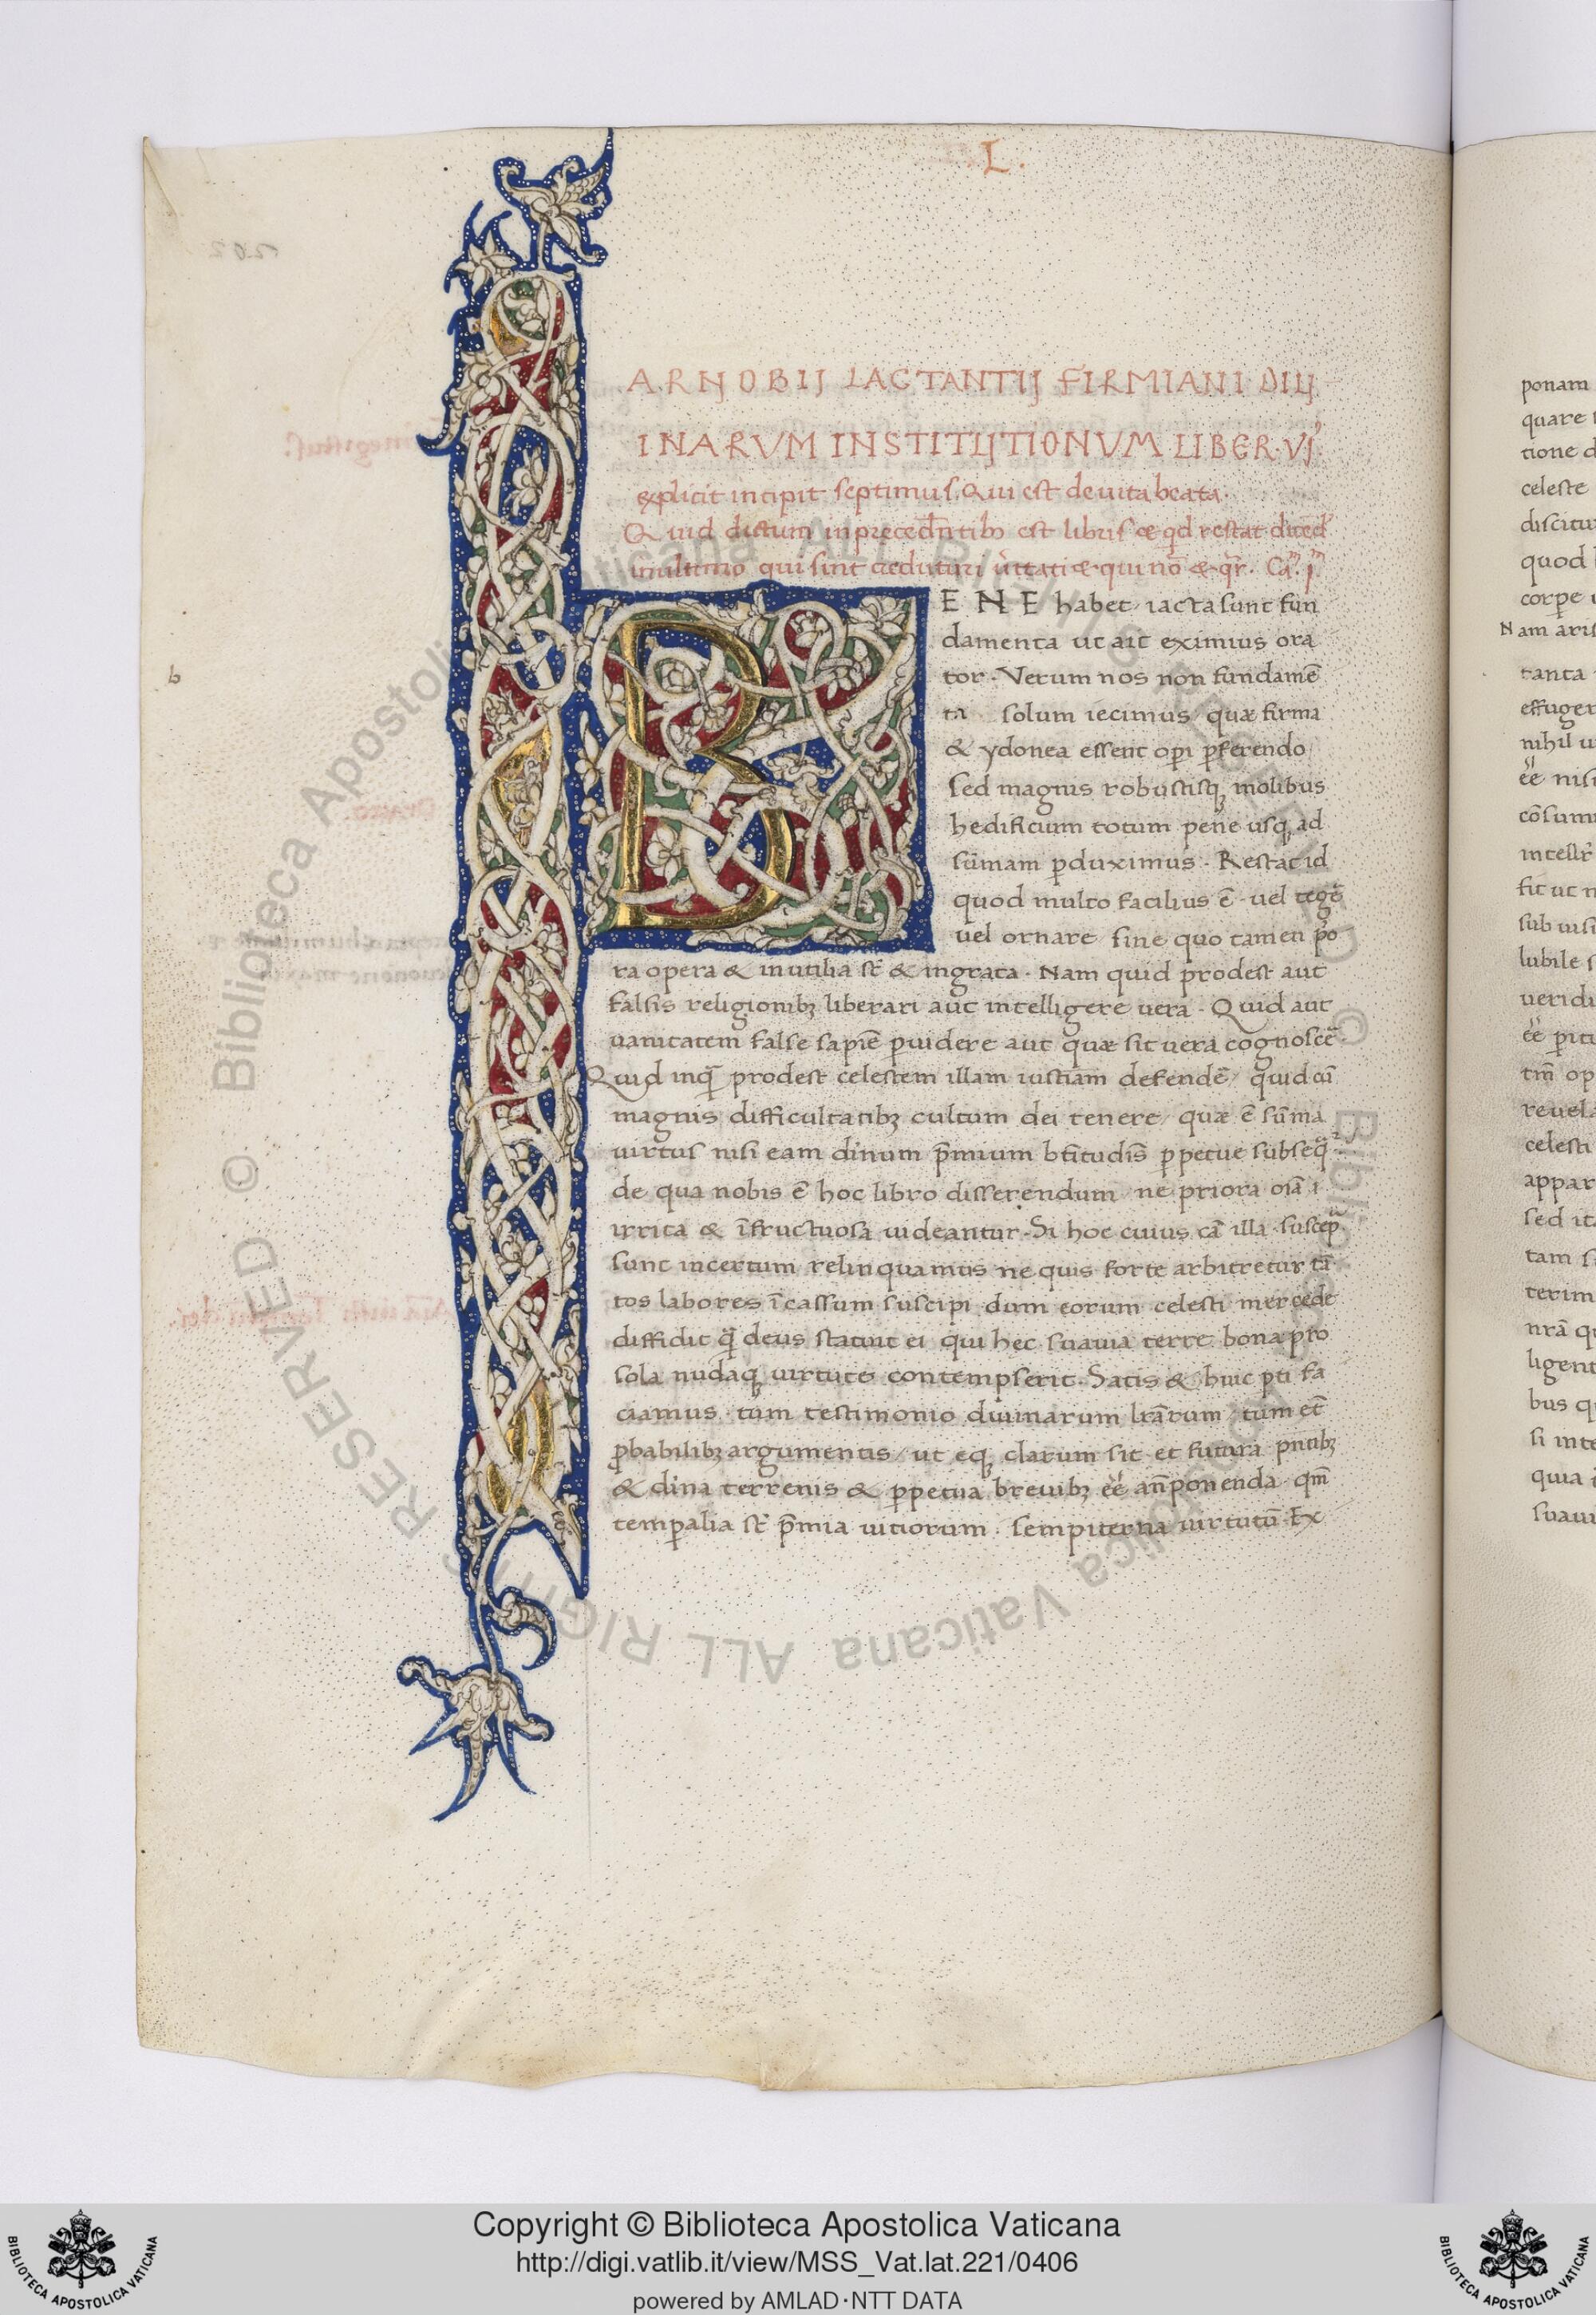 .L.
ARNOBIJ LACTANTIJ FIRMIANI DIU
INARVM INSTITUTIONVM LIBER.VJ.
explicit incipit septimus. Qui est de uita beata.
Quid dictum in preced̄ntib est libris & qd restat dicēd
in ultimo qui sint credituri u'itati & qui nō & qr̄. Cam. jm.
BENE habet iacta sunt fun
damenta ut ait eximius ora
tor. Verum nos non fundamē
ta solum iecimus / quæ firma
& ydonea essent op̄i p̄ferendo
sed magnis robustisq; molibus
hedificium totum pene usq; ad
sūmam ꝑduximus. Restat id
quod multo facilius ē. uel tegē
uel ornare / sine quo tamen p̄o
ra opera & inutilia st̄ & ingrata. Nam quid prodest aut
falsis religionibꝫ liberari aut intelligere uera. Quid aut
uanitatem false sapiē ꝓuidere aut quæ sit uera cognoscē.
Quid inq̄ prodest celestem illam iustiam defendē / quid cū
magnis difficultatibꝫ cultum dei tenere / quæ ē sūma
uirtus nisi eam diuinum p̄mium btītudis̄ ꝑpetue subseq̄r.
de qua nobis ē hoc libro disserendum ne priora oīa i
irrita & īfructuosa uideantur. Si hoc cuius cā illa suscep̄
sunt incertum relinquamus ne quis forte arbitretur tā
tos labores īcassum suscipi dum eorum celesti mercede
diffidit q̄ deus statuit ei qui hec suauia terre bona pro
sola nudaq; uirtute contempserit. Satis & huic pti fa
ciamus. tum testimonio diuinarum lrārum tum et̄
ꝓbabilibꝫ argumentis / ut eq; clarum sit et futura pn̄tibꝫ
& diuina terrenis & ꝑpetua breuibꝫ eē an̄ponenda. qm̄
temꝑalia st̄ p̄mia uitiorum. sempiterna uirtutū. Ex
b
ponam
quare
tione d
celeste
discitu
quod
corpe
Nam aris
tanta
effuger
nihil u
eē nisi
cōsum
intellr̄
fit ut n
sub uisi
lubile s
ueridi
eē peti
tm̄ op
reuela
celesti
appar
sed ita
tam s
terim
nrā q
ligent
bus q
si inte
quia
suaui
© Biblioteca Apostolica Vaticana ALL RIGHTS RESERVED
BIBLIOTECA APOSTOLICA VATICANA
Copyright © Biblioteca Apostolica Vaticana
http://digi.vatlib.it/view/MSS_Vat.lat.221/0406
powered by AMLAD·NTT DATA
BIBLIOTECA APOSTOLICA VATICANA